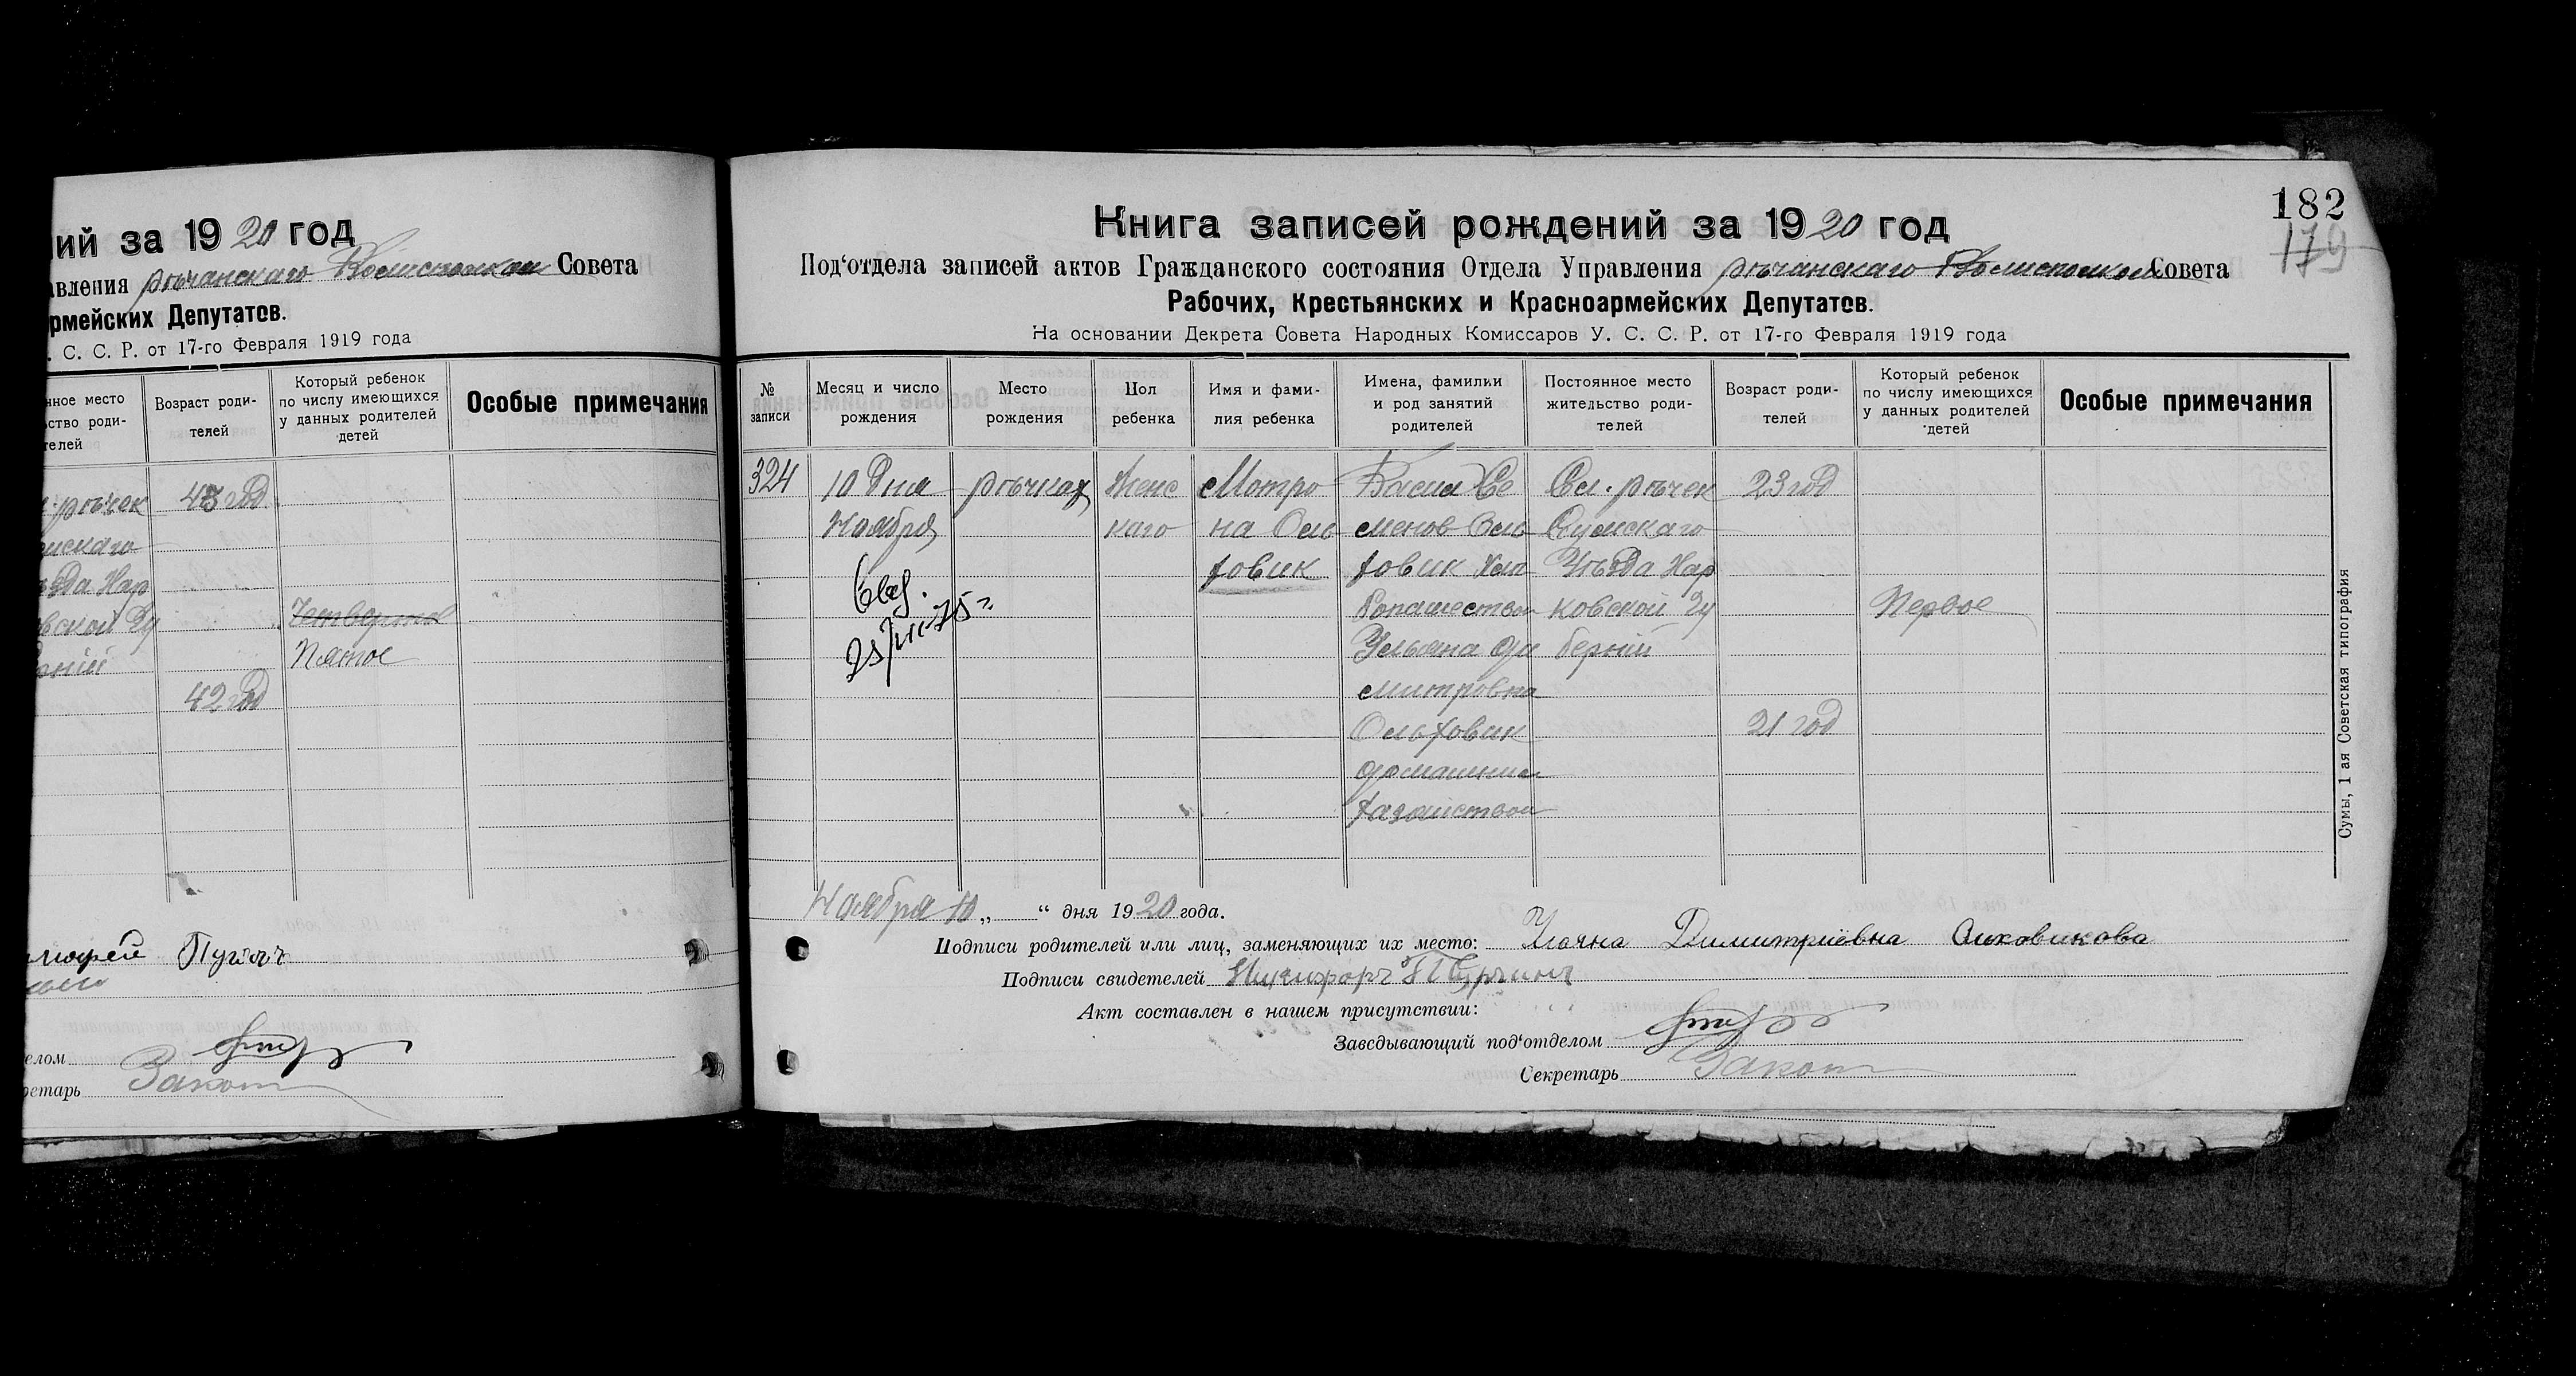 ий за 1920 год
авления рѣчанскаго Волисполком Совета
рмейских Депутатов.
. С. С. Р. от 17-го Февраля 1919 года
нное место
ство роди-
телей
Возраст роди-
телей
Который ребенок
по числу имеющихся
у данных родителей
детей
Особые примечания
рѣчек 43 год
мскаго
ѣзда Хар
Четвертое
вской Гу
Пятое
42 год
Пугач
елом
ретарь Закот
182
179
Книга записей рождений за 1920 год
Под‘отдела записей актов Гражданского состояния Отдела Управления рѣчанскаго Волисполком Совета
Рабочих, Крестьянских и Красноармейских Депутатов.
На основании Декрета Совета Народных Комиссаров У. С. С. Р. от 17-го Февраля 1919 года
№
записи
Месяц и число
рождения
Место
рождения
Пол
ребенка
Имя и фами-
лия ребенка
Имена, фамилии
и род занятий
родителей
Постоянное место
жительство роди-
телей
Возраст роди-
телей
Который ребенок
по числу имеющихся
у данных родителей
детей
Особые примечания
324 10 Дня рѣчках Женс Мотро Васил Се Сел. рѣчек 23 год
Ноября каго на Оль менов Оль Сумскаго
ховик ховик Хле Уѣзда Хар
бопашество ковской Гу Первое
Ульяна Ди берніи
митровна
Ольховик 21 год
Домашним
хазяйством
Ноября 10 „ “ дня 1920 года.
Подписи родителей или лиц, заменяющих их место: Улъяна Димитриевна Олховикова
Подписи свидетелей Никифоръ
Акт составлен в нашем присутствии:
Заведывающий под‘отделом
Секретарь Закот
Сумы, 1 ая Советская типография